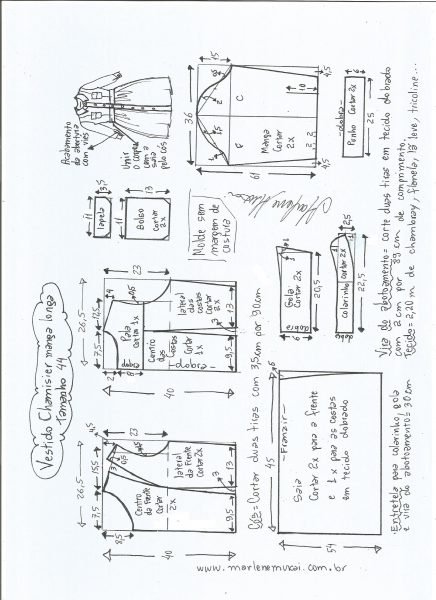 Vestido Chamisier manga longa
Tamanho 44
26,5
7,5
15,5
4,5
8,5
23
40
Centro da frente
Cortar
2x
lateral da frente
Cortar 2x
9,5
13
3
26,5
7,5
12,5
23
2
8
40
Pala Cortar 1x
Centro das Costas
Cortar 1x
-dobra-
lateral das costas
Cortar 2x
9,5
13
3
Cós= Cortar duas tiras com 3,5cm por 90cm
3,5
11
lapela
13
11
Bolso
Cortar
2x
Molde sem
margem de
costura
Acabamento
da abertura
com viés
Unir
o corpo
com a
saia
pelo cós
15
4,5
36
10
C
F
Manga
Cortar
2x
61
4,5
-dobra-
6
Punho Cortar 2x
25
Gola
Cortar 2x
dobra
20,5
2,5
colarinho Cortar 2x
22,5
45
6
-Franzir-
Saia
Cortar 2x para a frente
e 1x para as costas
em tecido dobrado
54
Vira do abotoamento= corte duas tiras em tecido dobrado
com 2cm por 89 cm de comprimento.
Tecido= 2,20 m de chambray, flanela, lã leve, tricoline...
Entretela para colarinho, gola
e vira do abotoamento= 30cm
www.marlenemukai.com.br